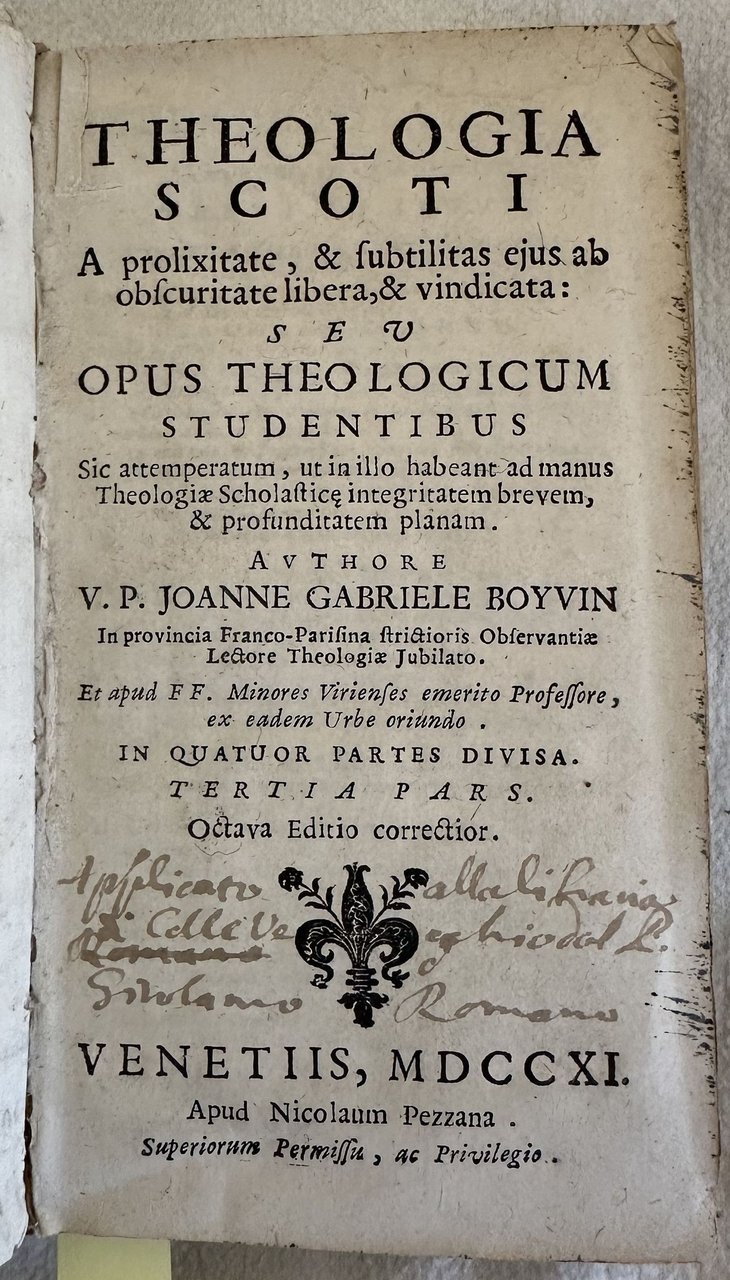 THEOLOGIA
SCOTI
A prolixitate, & ſubtilitas ejus ab
obſcuritate libera, & vindicata:
SEV
OPUS THEOLOGICUM
STUDENTIBUS
Sic attemperatum, ut in illo habeant ad manus
Theologiæ Scholaſticę integritatem brevem,
& profunditatem planam.
AVTHORE
V. P. JOANNE GABRIELE BOYVIN
In provincia Franco-Pariſina ſtrictioris Obſervantiæ
Lectore Theologiæ Jubilato.
Et apud FF. Minores Virienſes emerito Profeſſore,
ex eadem Urbe oriundo.
IN QUATUOR PARTES DIVISA.
TERTIA PARS.
Octava Editio correctior.
Applicato alla libraria
di Colle Vecchio dal P.
Girolamo Romano
VENETIIS, MDCCXI.
Apud Nicolaum Pezzana.
Superiorum Permiſſu, ac Privilegio.